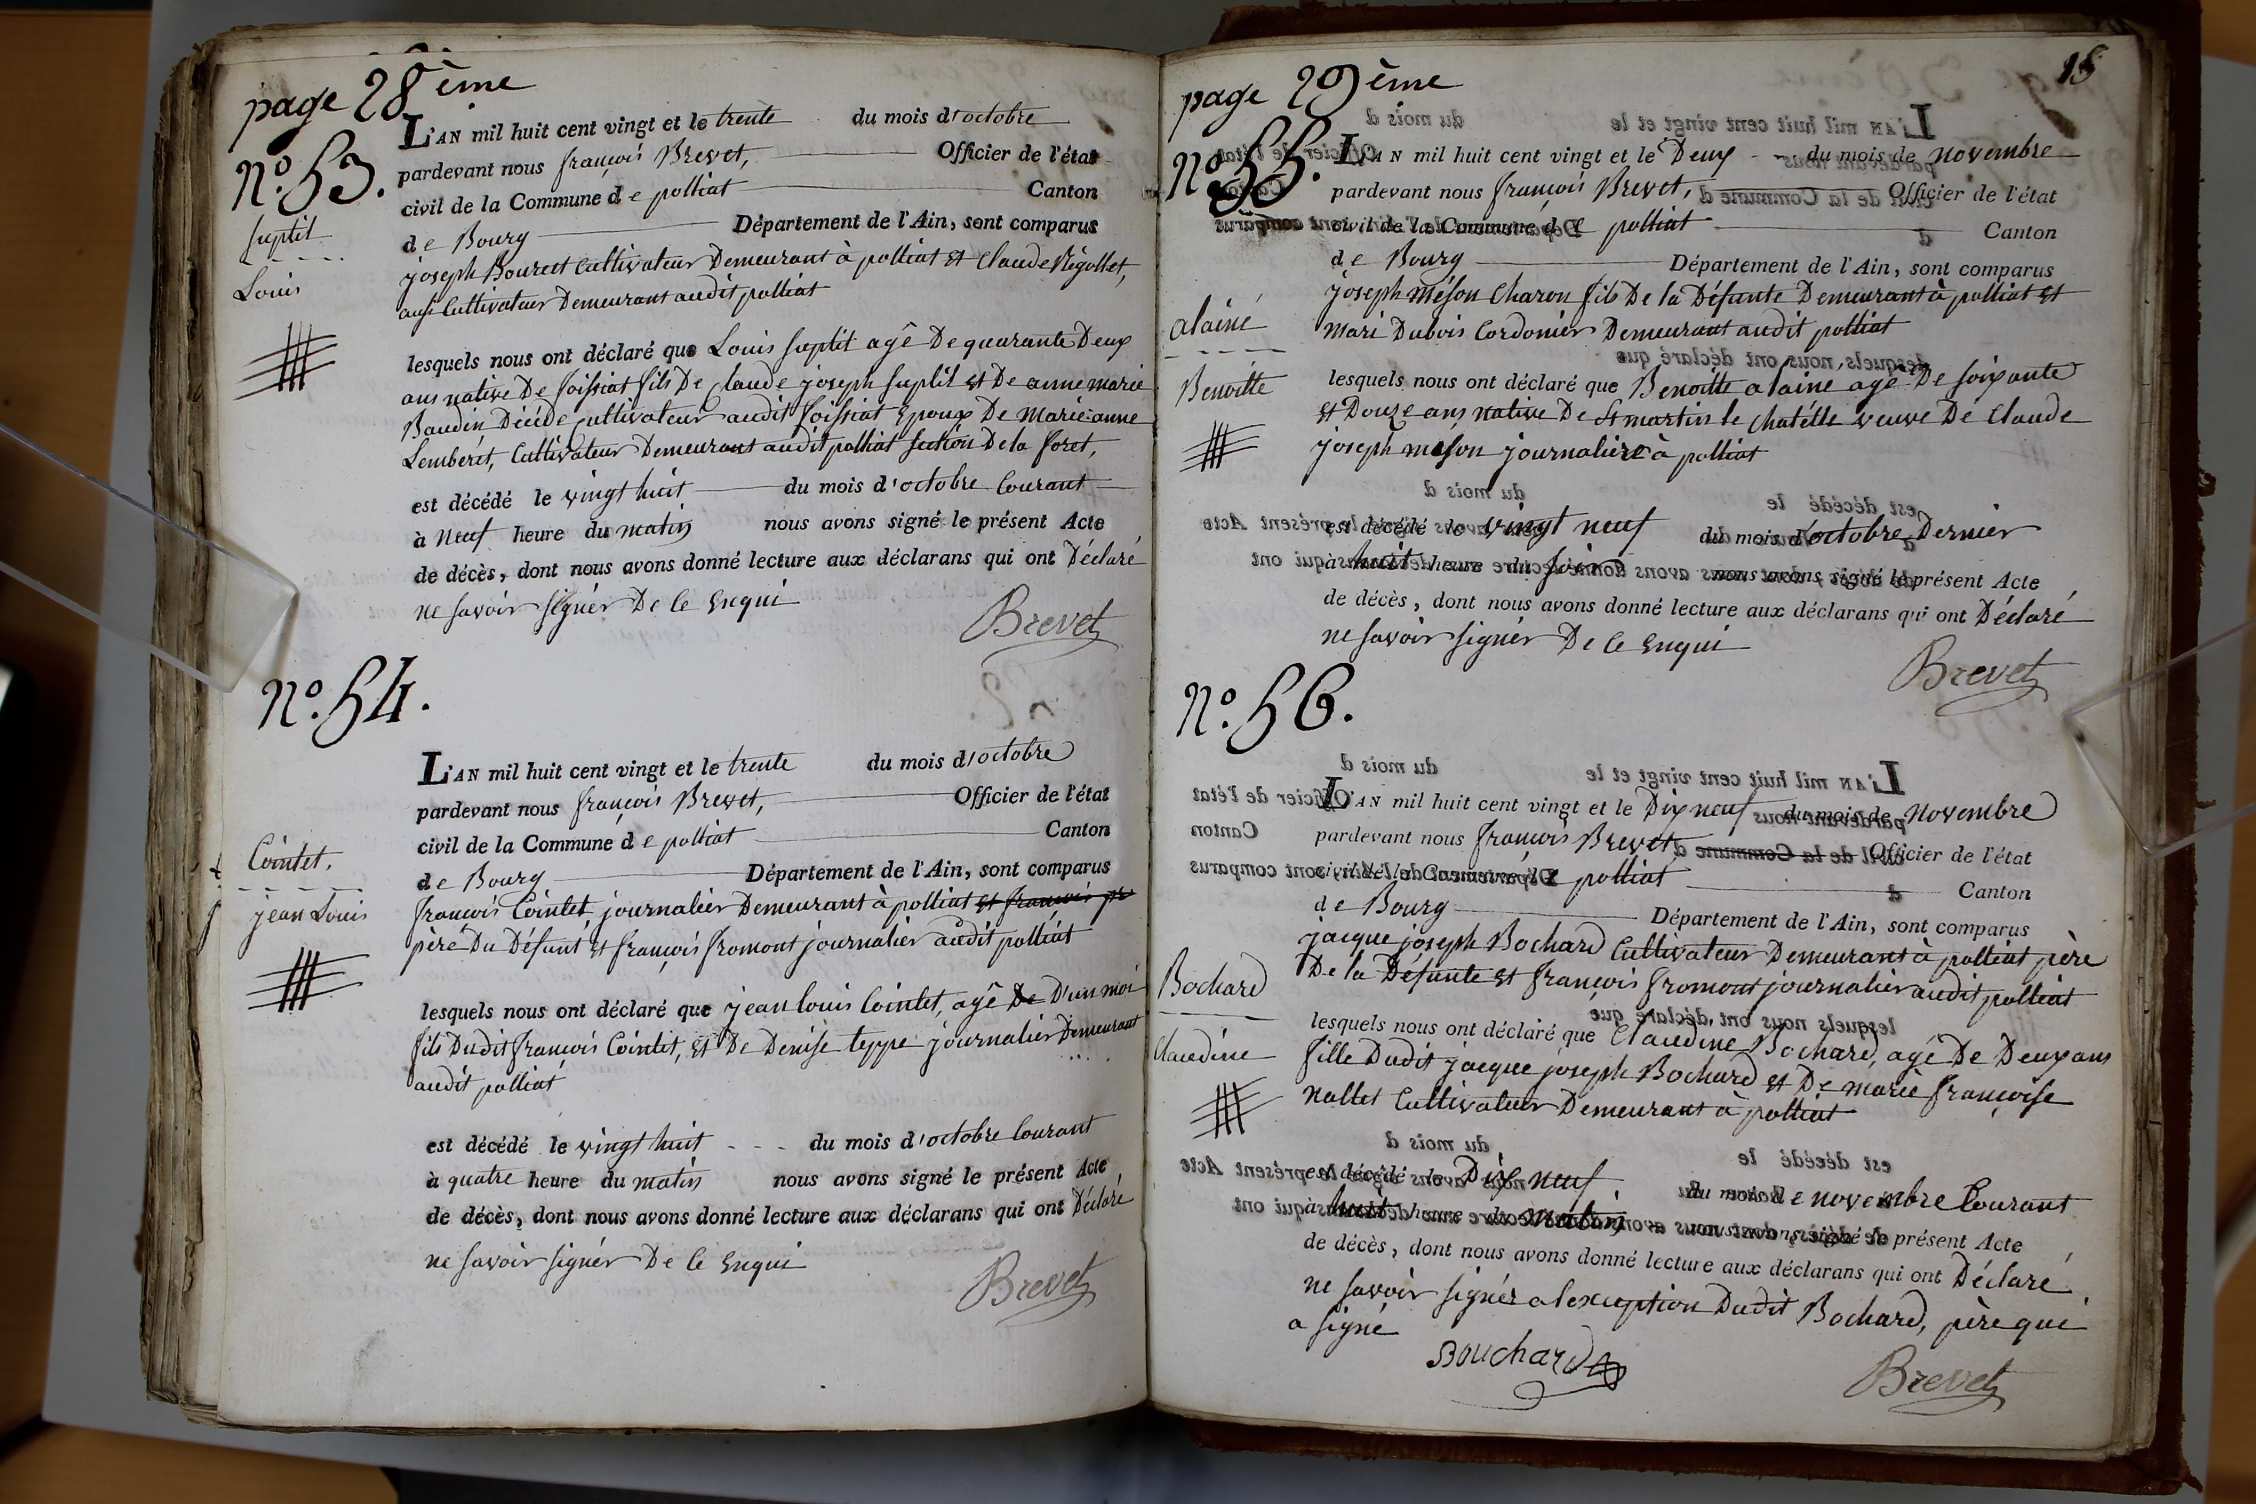 page 28ème
N°. 53.
Suptil
Louis
L'AN mil huit cent vingt et le trente du mois d'octobre
pardevant nous françois Brevet, Officier de l'état
civil de la Commune de polliat Canton
de Bourg Département de l'Ain, sont comparus
joseph Bouret Cultivateur Demeurant à polliat et Claude Rigollet,
ausi Cultivateur Demeurant audit polliat
lesquels nous ont déclaré que Louis Suptil agê De quarante Deux
ans native De foissiat fils De Claude joseph Suptil et De anne marie
Baudin Décéde cultivateur audit foissiat Epoux De Marie anne
Lemberét, Cultivateur Demeurant audit polliat section De la foret,
est décédé le vingt huit du mois d'octobre Courant
à neuf heure du matin nous avons signé le présent Acte
de décès, dont nous avons donné lecture aux déclarans qui ont Déclaré
ne savoir signér De Ce Enqui
Brevet
N°. 54.
Cointet,
jean Louis
L'AN mil huit cent vingt et le trente du mois d'octobre
pardevant nous françois Brevet, Officier de l'état
civil de la Commune de polliat Canton
de Bourg Département de l'Ain, sont comparus
françois Cointet journalier Demeurant à polliat et françois
père Du Défunt et françois fromont journalier audit polliat
lesquels nous ont déclaré que jean louis Cointet, agê De D'un moi
fils Dudit françois Cointet, et De Denise teppe journalier Demeurant
audit polliat
est décédé le vingt huit du mois d'octobre Courant
à quatre heure du matin nous avons signé le présent Acte
de décès, dont nous avons donné lecture aux déclarans qui ont Déclaré
ne savoir signér De Ce Enqui
Brevet
page 29ème
N°. 55.
alainé
Benoitte
L'AN mil huit cent vingt et le Deux du mois de novembre
pardevant nous françois Brevet, Officier de l'état
civil de la Commune de polliat Canton
de Bourg Département de l'Ain, sont comparus
joseph méson Charon fils De la Défunte Demeurant à polliat et
mari Dubois Cordonier Demeurant audit polliat
lesquels nous ont déclaré que Benoitte alaine agé De soixante
et Douze ans native De St martin le Chatélle veuve De Claude
joseph meson journaliere à polliat
est décédé le vingt neuf du mois d'octobre Dernier
à huit heure du soir nous avons signé le présent Acte
de décès, dont nous avons donné lecture aux déclarans qui ont Déclaré
ne savoir signér De Ce Enqui
Brevet
N°. 56.
Bochard
Claudine
L'AN mil huit cent vingt et le Dix neuf du mois de novembre
pardevant nous françois Brevet Officier de l'état
civil de la Commune de polliat Canton
de Bourg Département de l'Ain, sont comparus
jacque joseph Bochard Cultivateur Demeurant à polliat père
De la Défunte et françois fromont journalier audit polliat
lesquels nous ont déclaré que Claudine Bochard, agé De Deux ans
fille Dudit jacque joseph Bochard et De marie françoise
nallet Cultivateur Demeurant à polliat
est décédé le Dix neuf du mois de novembre Courant
à huit heure du matin nous avons signé le présent Acte
de décès, dont nous avons donné lecture aux déclarans qui ont Déclaré
ne savoir signér a lexception Dudit Bochard, père qui
a signé
Bouchard
Brevet